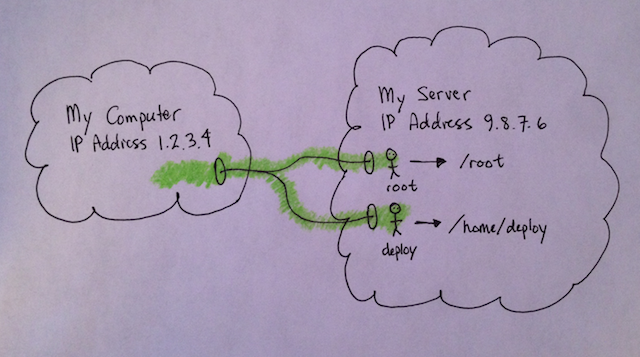 My Computer
IP Address 1.2.3.4
My Server
IP Address 9.8.7.6
root
/root
deploy
/home/deploy